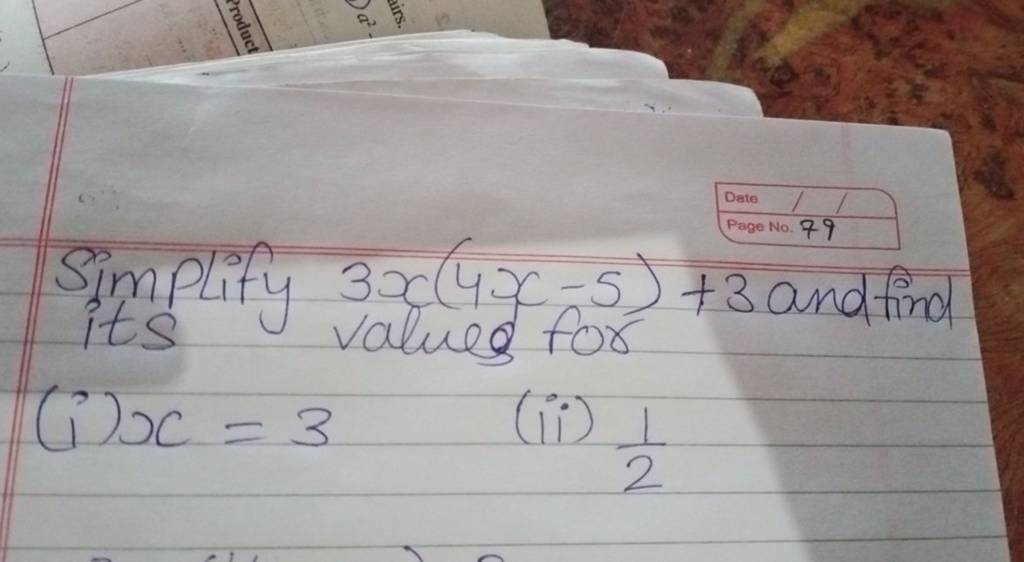 Product
airs.
a²-
Date / /
Page No. 79
Simplify 3x(4x-5) +3 and find
its values for
(i) x = 3 (ii) 1/2